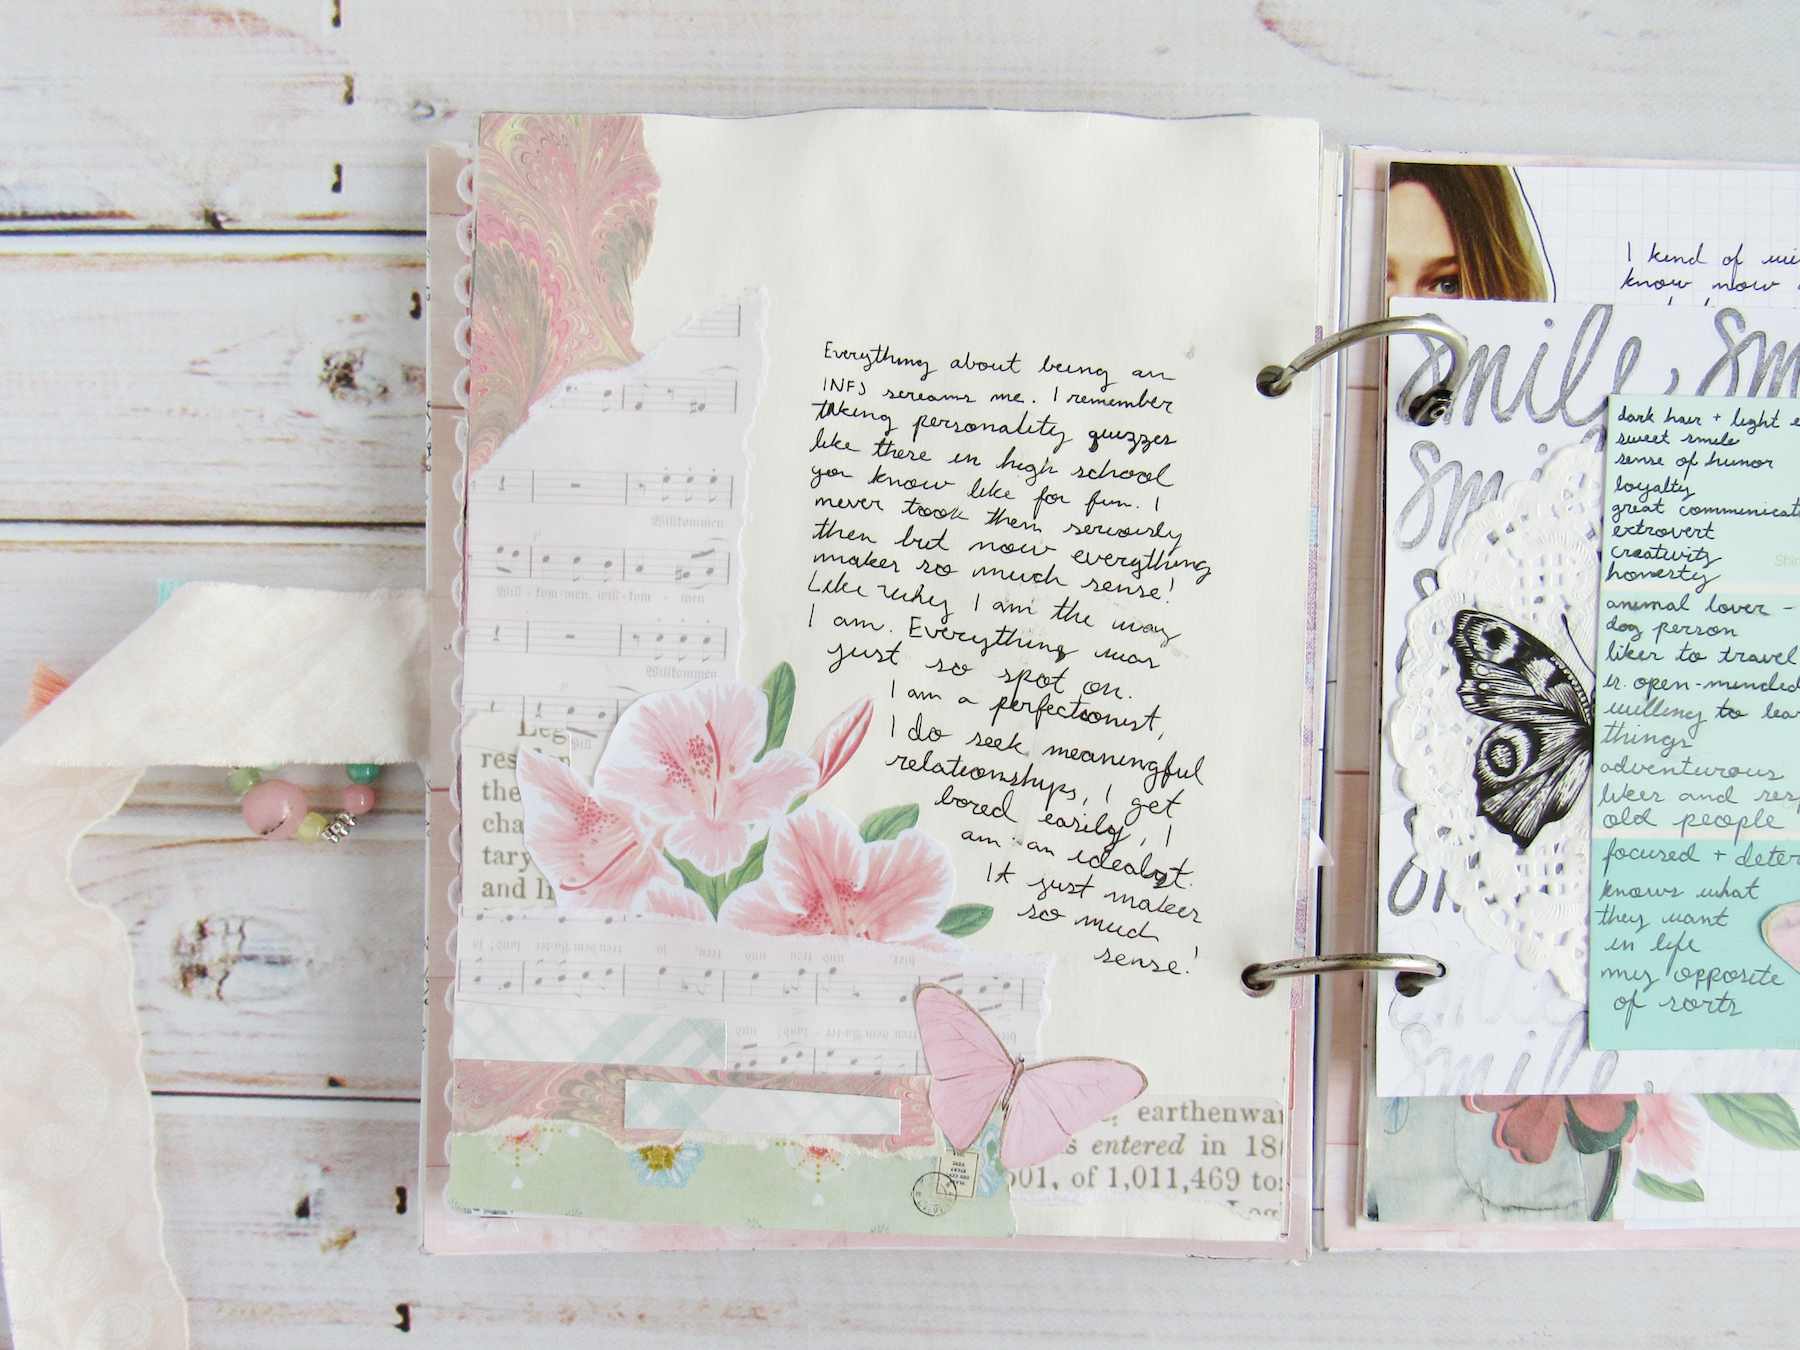 Everything about being an
INFJ screams me. I remember
taking personality quizzes
like these in high school
you know like for fun. I
never took them seriously
then but now everything
makes so much sense!
Like why I am the way
I am. Everything was
just so spot on.
I am a perfectionist,
I do seek meaningful
relationships, I get
bored easily, I
am an idealist.
It just makes
so much
sense!
Willkommen
Will - kom - men, will - kom - men
Willkommen
Will
Leg
res
the
cha
tary
and li
treu dem Va - ter - land! und
earthenwa
s entered in 18
001, of 1,011,469 to
I kind of
know now
smile, sm
dark hair + light e
sweet smile
sense of humor
loyalty
great communicat
extrovert
creativity
honesty
animal lover -
dog person
likes to travel
is open-minded
willing to lea
things
adventurous
likes and resp
old people
focused + deter
knows what
they want
in life
my opposite
of sorts
smile